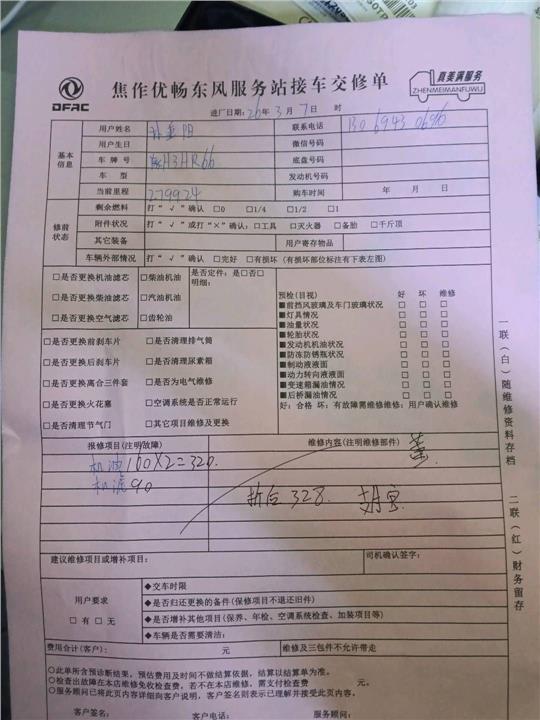 DFAC
焦作优畅东风服务站接车交修单
真美满服务
ZHENMEIMANFUWU
进厂日期: 26年 3月 7日 时
基本信息
用户姓名 联系电话 130 6943 0696
用户生日 微信号码
车牌号 豫H3HR66 底盘号码
车型 发动机号码
当前里程 279924 购车时间 年 月 日
修前状态
剩余燃料 打“√”确认 □0 □1/4 □1/2 □1
附件状况 打“√”或打“×”确认: □工具 □灭火器 □备胎 □千斤顶
其它装备 用户寄存物品
车辆外部情况 打“√”确认 □完好 □有损坏 (有损坏部位标注有下表左图)
□是否更换机油滤芯 □柴油机油 是否定件: 是□否□
明细:
□是否更换柴油滤芯 □汽油机油
□是否更换空气滤芯 □齿轮油
预检(目视) 好 坏 维修
■前挡风玻璃及车门玻璃状况 □ □ □
■灯具情况 □ □ □
■油量状况 □ □ □
■轮胎状况 □ □ □
■发动机机油状况 □ □ □
■防冻防锈瓶状况 □ □ □
■制动液液面 □ □ □
■动力转向液液面 □ □ □
■变速箱漏油情况 □ □ □
■后桥漏油情况 □ □ □
好: 合格 坏: 有故障需维修维修: 用户确认维修
□是否更换前刹车片 □是否清理排气筒
□是否更换后刹车片 □是否清理尿素箱
□是否更换离合三件套 □是否为电气维修
□是否更换火花塞 □空调系统是否正常运行
□是否清理节气门 □其它项目维修及更换
报修项目(注明故障) 维修内容(注明维修部件)
机油160×2=320.
机滤90
折后328.
建议维修项目或增补项目: 司机确认签字:
用户要求
□有 □无
◆交车时限
◆是否归还更换的备件(保修项目不退还旧件)
◆是否增补其他项目(保养、年检、空调系统检查、加装项目等)
◆车辆是否需要清洁:
费用合计(客户): 元 维修及三包件不允许带走
○此单所含预诊断结果，预估费用及时间不做结算依据，结算以结算单为准。
○检查出故障在本店维修免收检查费，若不在本店维修，需支付检查费 元。
○服务顾问已将此页内容详细向客户说明，客户签名则表示已理解并接受此页内容。
客户签名: 客户电话: 服务顾问:
一联(白)随维修资料存档
二联(红)财务留存